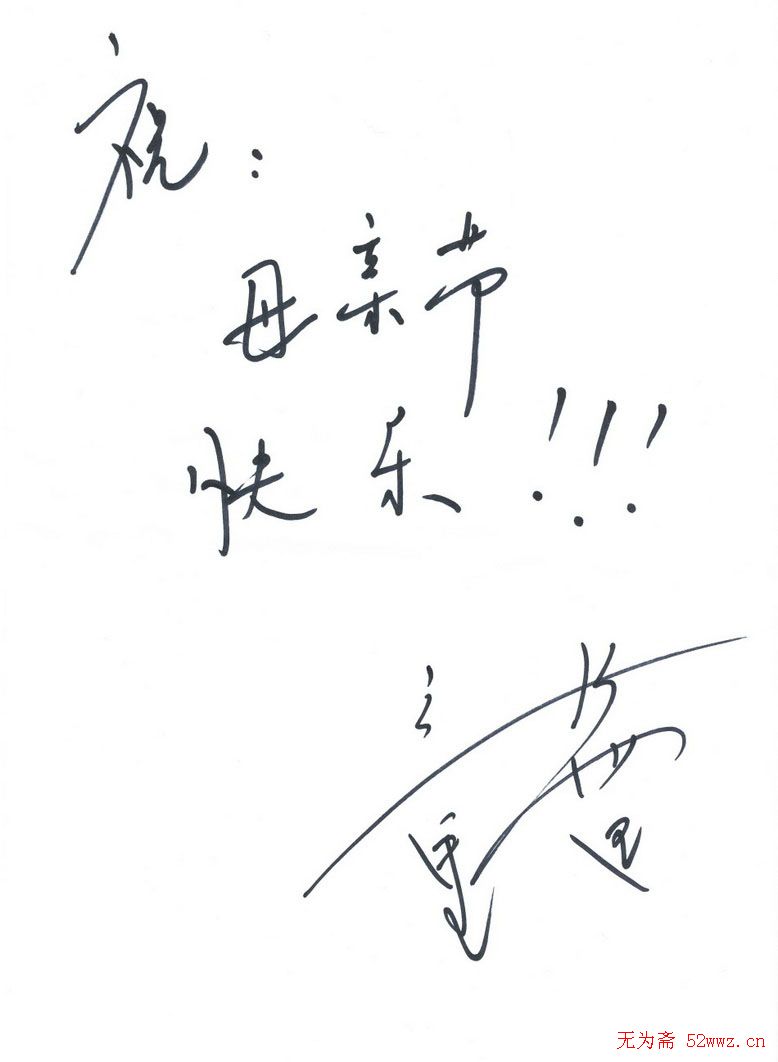 祝：
母亲节
快乐!!!
无为斋 52wwz.cn